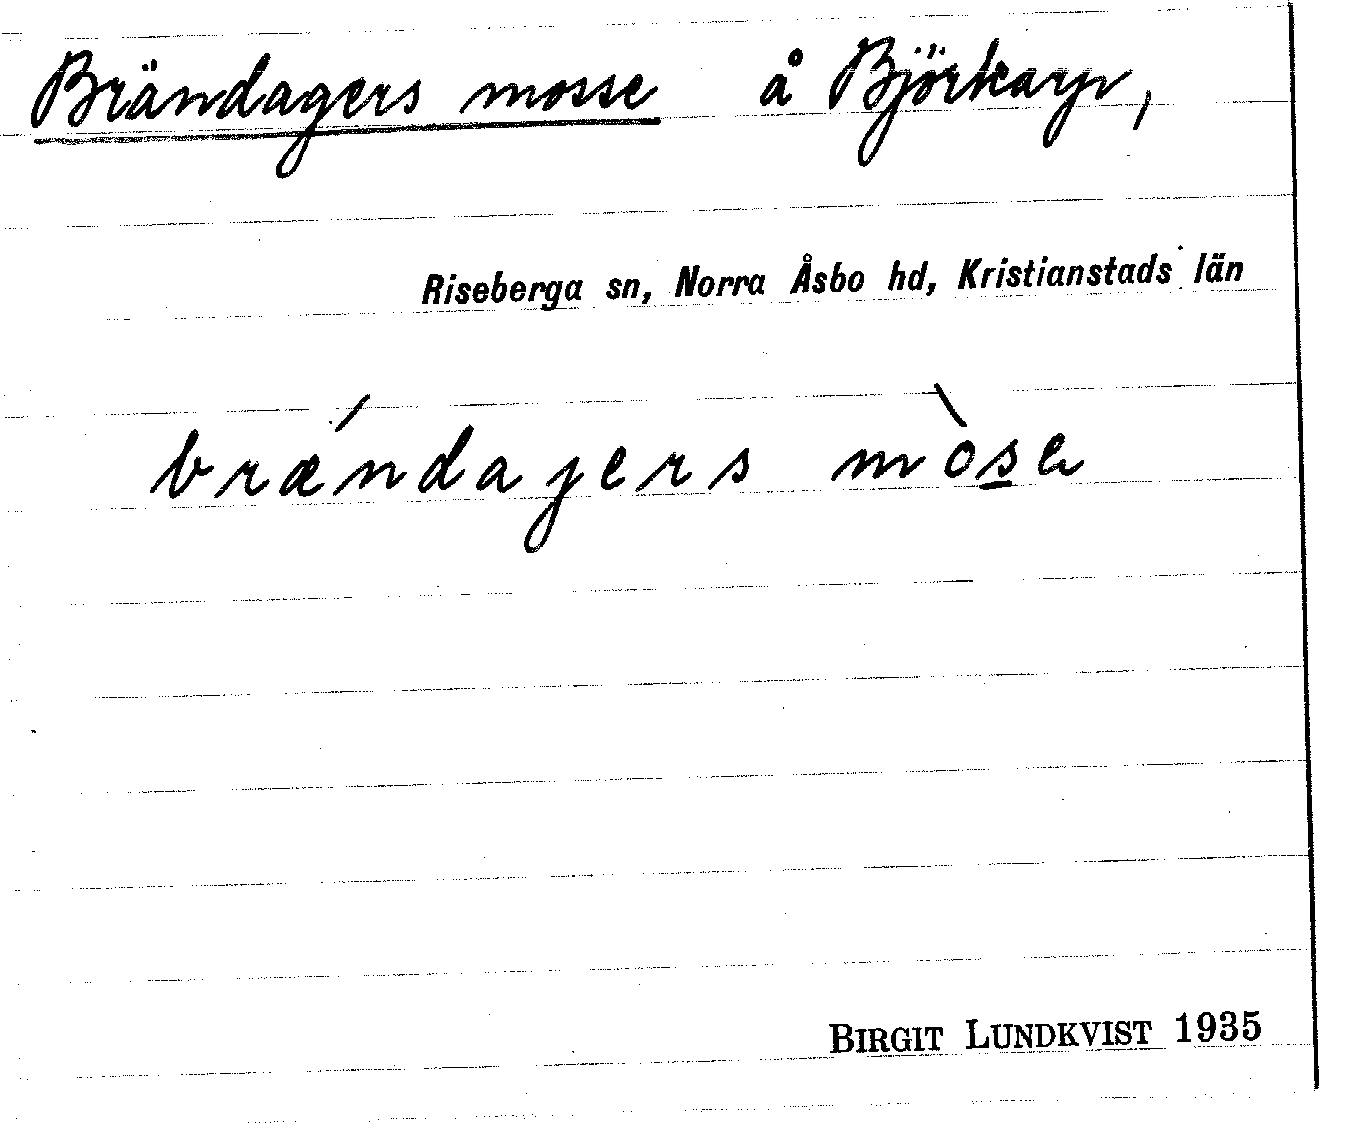 Brändagers mosse å Björkarp,
Riseberga sn, Norra Åsbo hd, Kristianstads län
bræ´ndagers mò̱sa
BIRGIT LUNDKVIST 1935